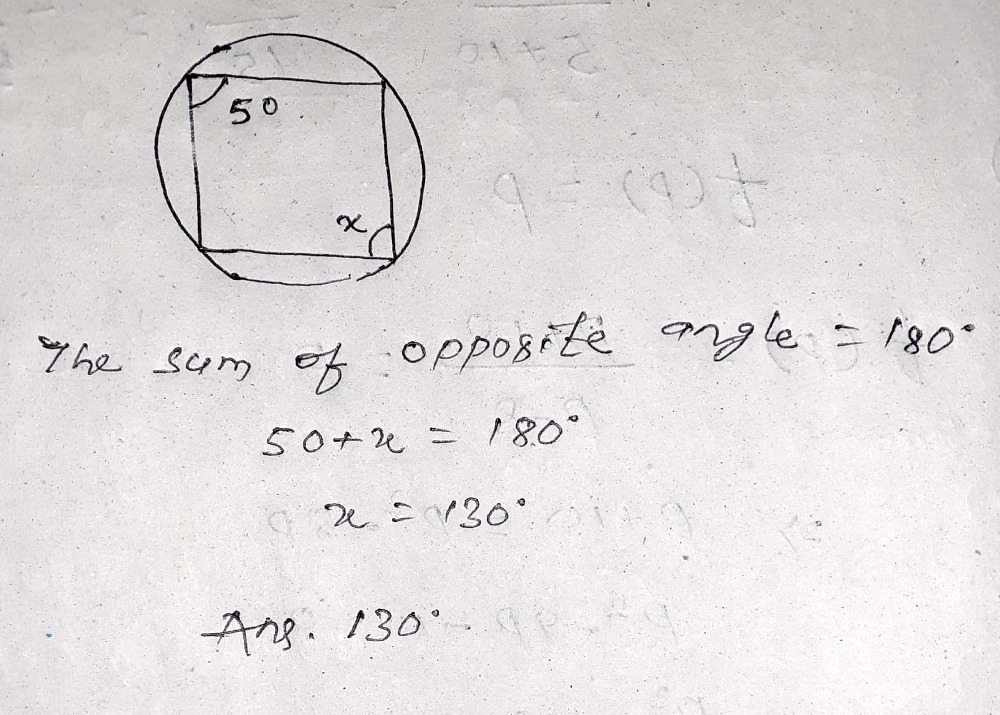 50
x
The sum of opposite angle = 180°
50+x = 180°
x = 130°
Ans. 130°